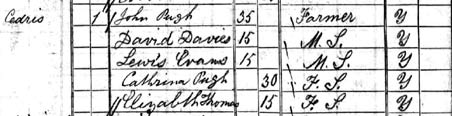 Cedris 1 John Pugh 35 Farmer Y
David Davies 15 M. S. Y
Lewis Evans 15 M. S. Y
Cathrina Pugh 30 F. S. Y
Elizabth Thomas 15 F. S. Y